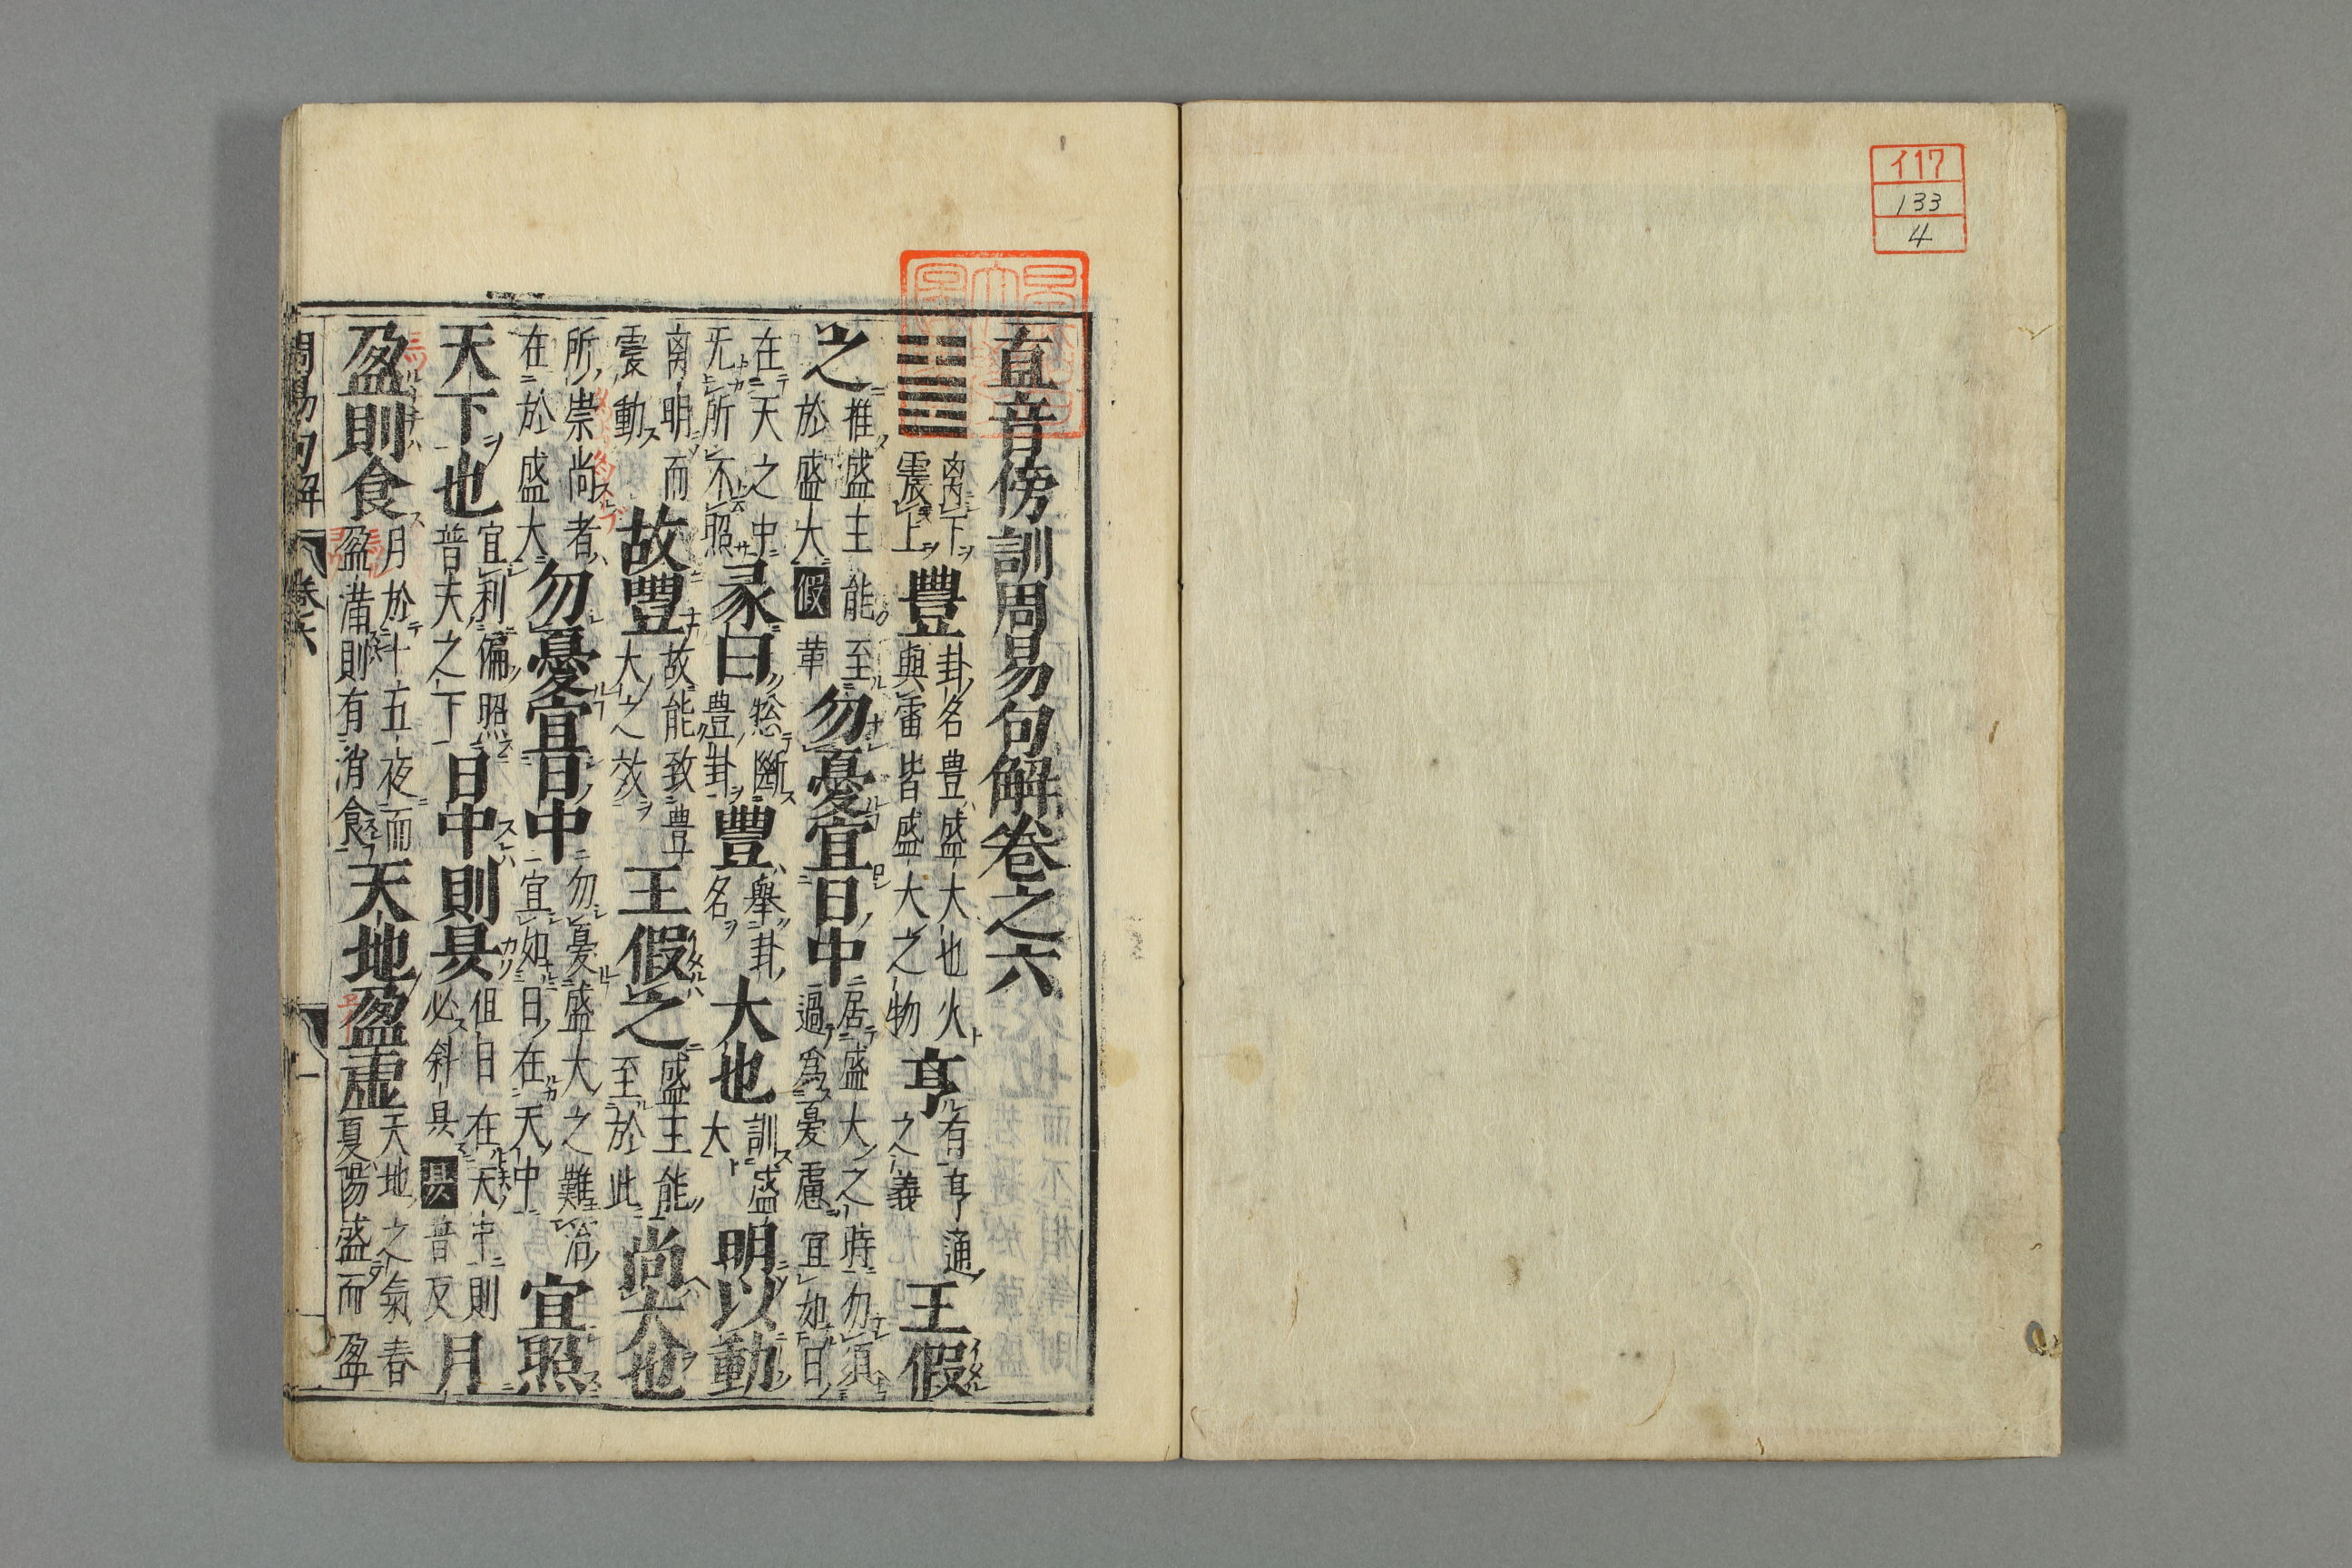 イ17
133
4
直音傍訓周易句解卷之六
離下震上豐卦名豊盛大也火與雷皆盛大之物亨有亨通之義王假
之惟盛王能至於盛大假革勿憂宜日中居盛大之時勿須過爲憂慮宜如日
在天之中无所不照彖曰總斷豊卦豐舉卦名大也訓盛大明以動
离明而震動故豐故能致豊大之效王假之盛王能至於此尚大也
所崇尚者在於盛大勿憂宜日中勿憂盛大之難治宜如日在天中宜照
天下也宜利徧照普天之下日中則昃但日在天中則必斜昃昃音仄月
盈則食月於十五夜而盈滿則有消食天地盈虛天地之氣春夏陽盛而盈
周易句解 卷六 一